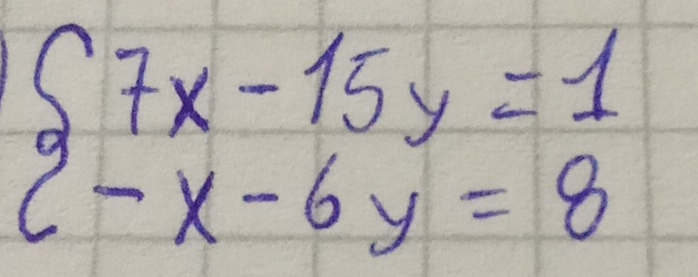 7x - 15y = 1
-x - 6y = 8